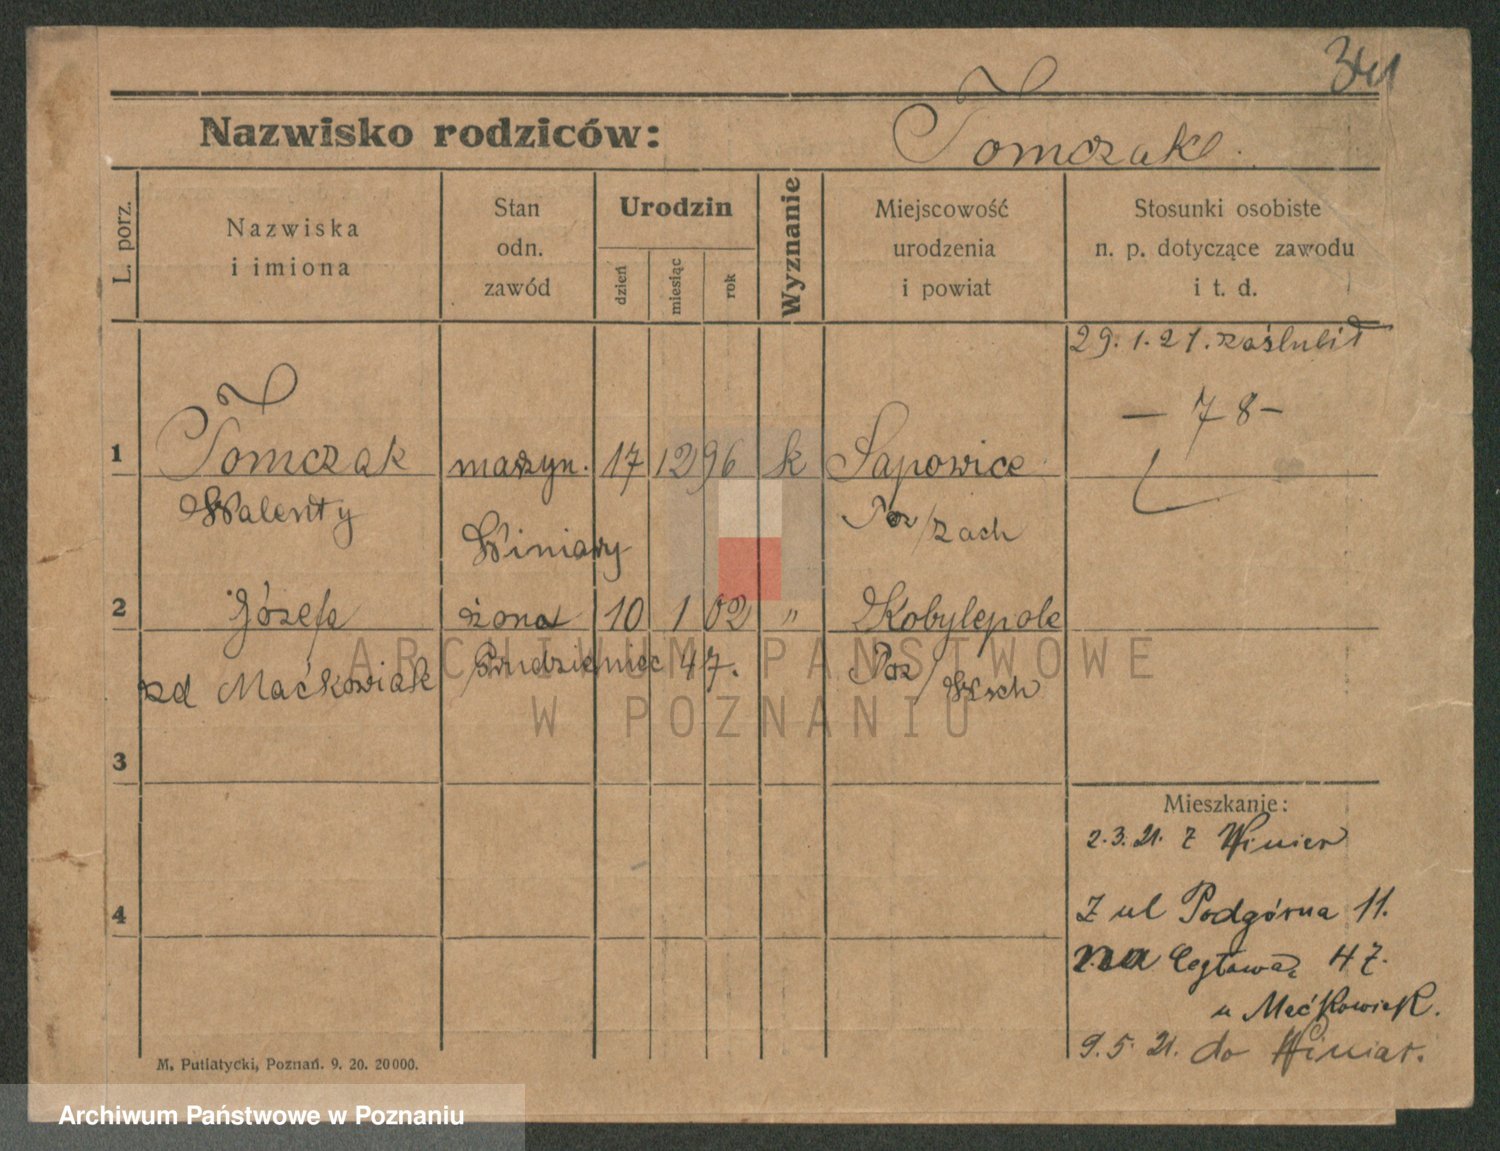 Nazwisko rodziców: Tomczak
L. porz.
Nazwiska
i imiona
Stan
odn.
zawód
Urodzin
dzień
miesiąc
rok
Wyznanie
Miejscowość
urodzenia
i powiat
Stosunki osobiste
n. p. dotyczące zawodu
i t. d.
29. 1. 21. zaślubił
— 78 —
1 Tomczak maszyn. 17 12 96 k Sapowice
Walenty Winiary Poz/zach
2 Józefa żona 10 1 02 " Kobylepole
zd Maćkowiak Grudzieniec 47. Poz/Wsch
3
4
Mieszkanie:
2.3.21. z Winier
z ul Podgórna 11.
na 47.
u Maćkowiak.
9.5.21. do Winiar.
M. Putiatycki, Poznań. 9. 20. 20000.
ARCHIWUM PAŃSTWOWE
W POZNANIU
Archiwum Państwowe w Poznaniu